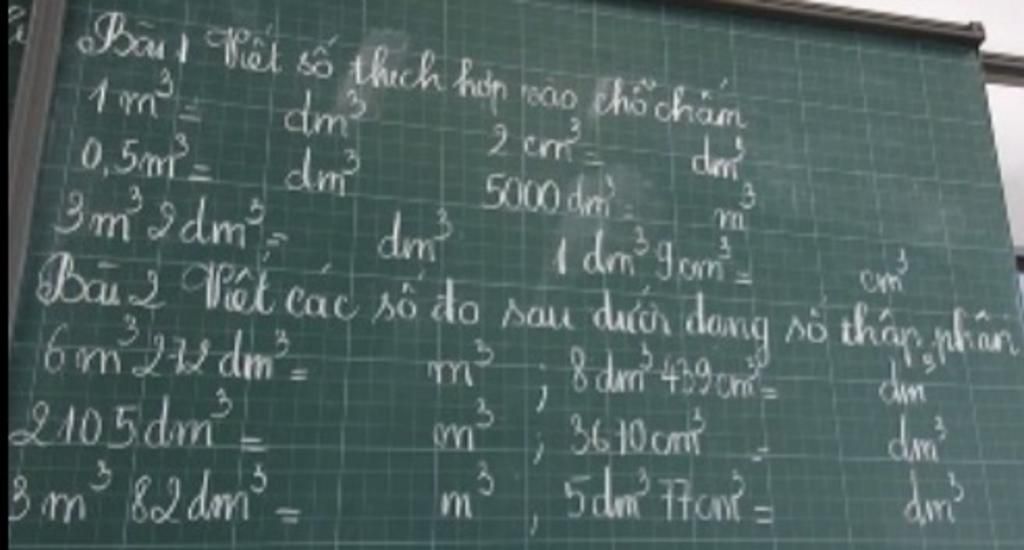 Bài 1 Viết số thích hợp vào chỗ chấm
1 m³ = dm³ 2 cm³ = dm³
0,5m³ = dm³ 5000 dm³ = m³
3m³ 2dm³ = dm³ 1 dm³ 9cm³ = cm³
Bài 2 Viết các số đo sau dưới dạng số thập phân
6m³ 272 dm³ = m³ ; 8 dm³ 439 cm³ = dm³
2105 dm³ = m³ ; 3670 cm³ = dm³
3 m³ 82 dm³ = m³ ; 5 dm³ 77 cm³ = dm³